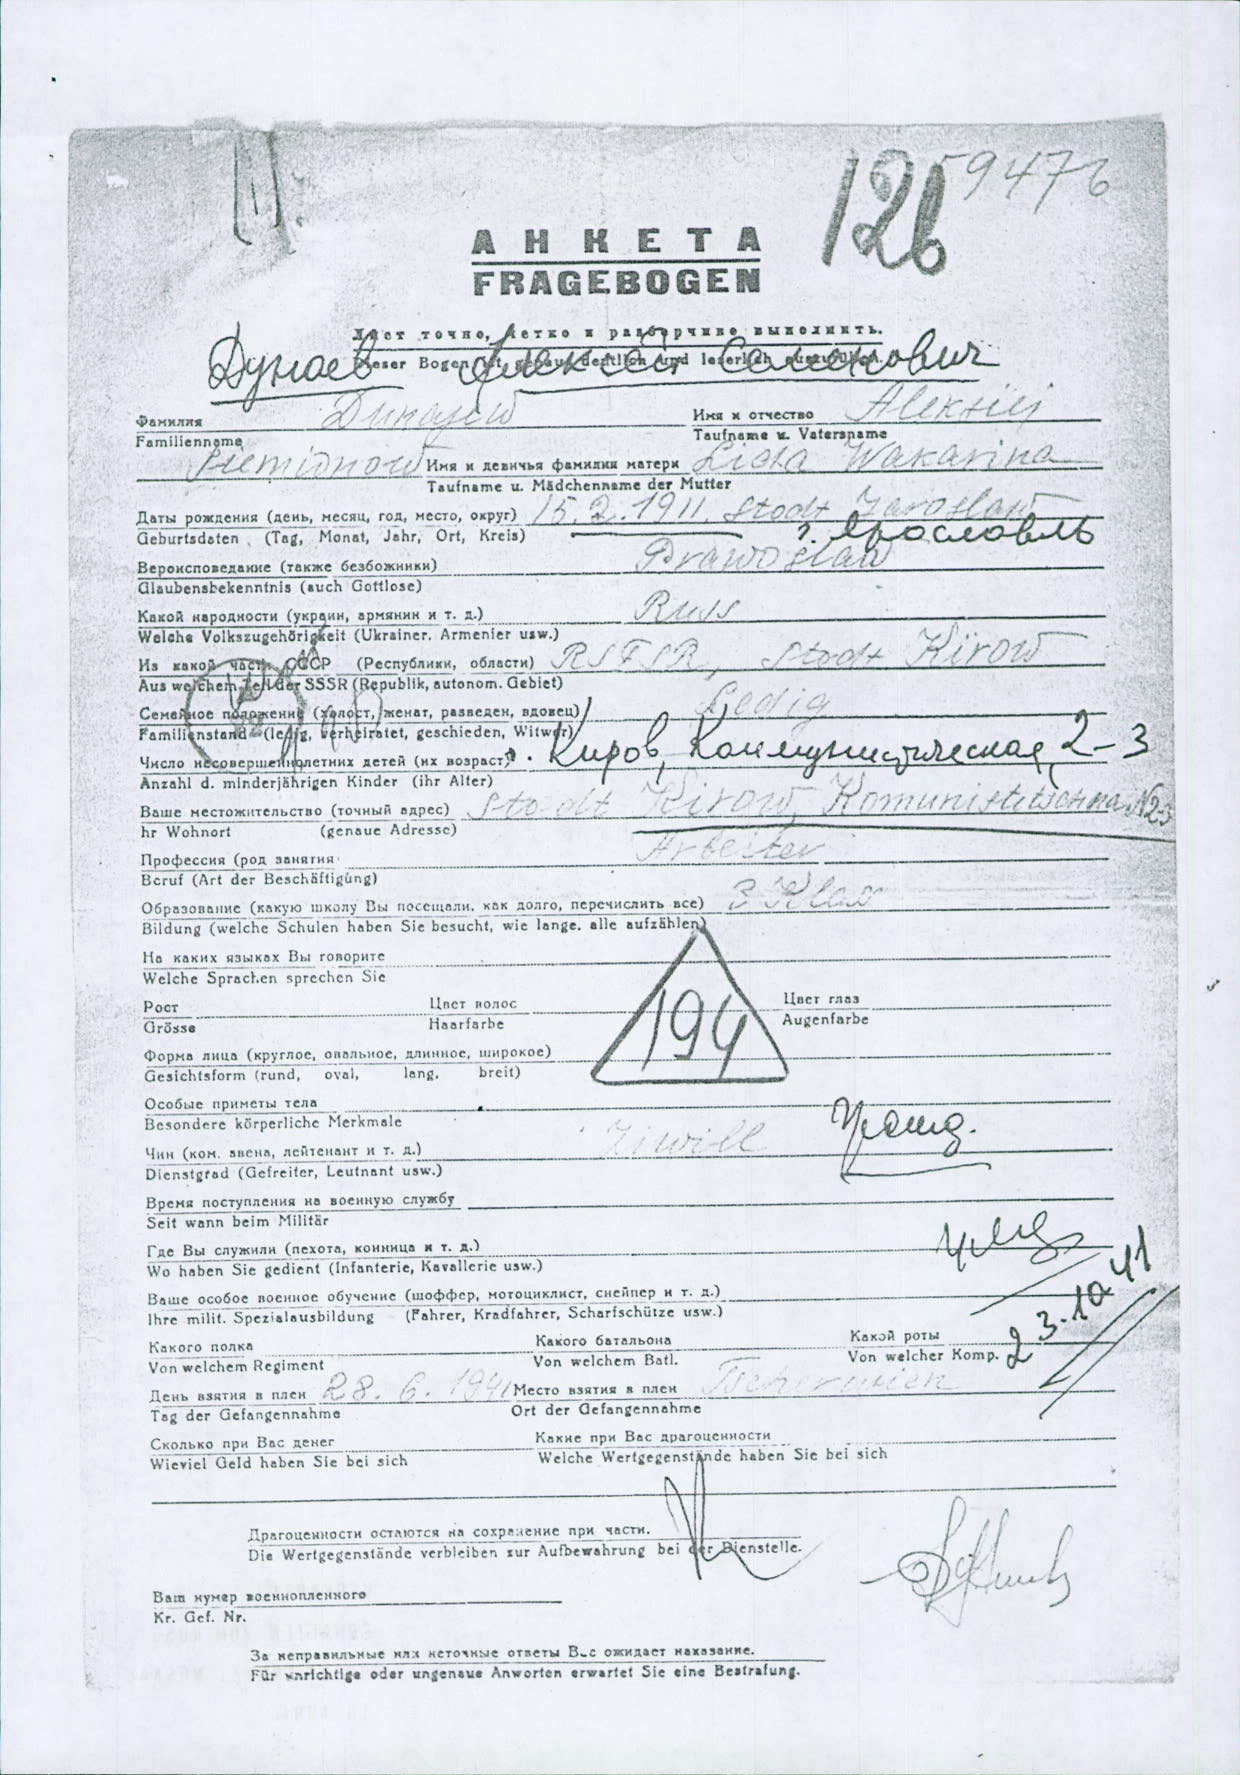 126 59476
АНКЕТА
FRAGEBOGEN
Лист точно, четко и разборчиво выполнить.
Dieser Bogen ist genau, deutlich und leserlich
Дунаев Алексей Семенович
Фамилия Dunajew Имя и отчество Aleksiej
Familienname Taufname u. Vatersname
Siemionow Имя и девичья фамилия матери Lidia Wakarina
Taufname u. Mädchenname der Mutter
Даты рождения (день, месяц, год, место, округ) 15.2.1911. Stadt Jaroslaw
Geburtsdaten (Tag, Monat, Jahr, Ort, Kreis) г. Ярославль
Вероисповедание (также безбожники) Prawoslaw
Glaubensbekenntnis (auch Gottlose)
Какой народности (украин, армянин и т. д.) Russ
Welche Volkszugehörigkeit (Ukrainer, Armenier usw.)
Из какой части СССР (Республики, области) RSFSR, Stadt Kirow
Aus welchem Teil der SSSR (Republik, autonom. Gebiet)
Семейное положение (холост, женат, разведен, вдовец) Ledig
Familienstand (ledig, verheiratet, geschieden, Witwer)
Число несовершеннолетних детей (их возраст) Киров, Коммунистическая, 2-3
Anzahl d. minderjährigen Kinder (ihr Alter)
Ваше местожительство (точный адрес) Stadt Kirow, Komunistitschna N23
hr Wohnort (genaue Adresse)
Профессия (род занятия Arbeiter
Beruf (Art der Beschäftigung)
Образование (какую школу Вы посещали, как долго, перечислить все) 3 Klas
Bildung (welche Schulen haben Sie besucht, wie lange, alle aufzählen)
На каких языках Вы говорите
Welche Sprachen sprechen Sie
194
Рост Цвет волос Цвет глаз
Grösse Haarfarbe Augenfarbe
Форма лица (круглое, овальное, длинное, широкое)
Gesichtsform (rund, oval, lang, breit)
Особые приметы тела
Besondere körperliche Merkmale
Чин (ком. звена, лейтенант и т. д.) Ziwill гражд.
Dienstgrad (Gefreiter, Leutnant usw.)
Время поступления на военную службу
Seit wann beim Militär
Где Вы служили (пехота, конница и т. д.)
Wo haben Sie gedient (Infanterie, Kavallerie usw.)
Ваше особое военное обучение (шоффер, мотоциклист, снейпер и т. д.)
Ihre milit. Spezialausbildung (Fahrer, Kradfahrer, Scharfschütze usw.)
23.10 41
Какого полка Какого батальона Какой роты
Von welchem Regiment Von welchem Batl. Von welcher Komp.
День взятия в плен 28. 6. 1941 Место взятия в плен Tscherwien
Tag der Gefangennahme Ort der Gefangennahme
Сколько при Вас денег Какие при Вас драгоценности
Wieviel Geld haben Sie bei sich Welche Wertgegenstände haben Sie bei sich
Драгоценности остаются на сохранение при части.
Die Wertgegenstände verbleiben zur Aufbewahrung bei der Dienstelle.
Ваш нумер военнопленного
Kr. Gef. Nr.
За неправильные или неточные ответы Вас ожидает наказание.
Für unrichtige oder ungenaue Anworten erwartet Sie eine Bestrafung.